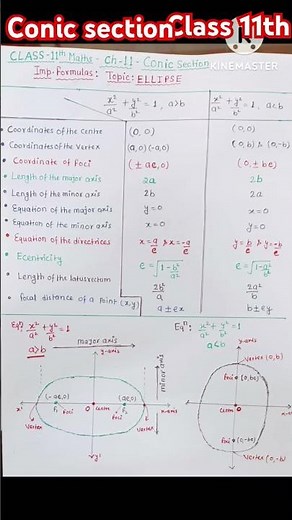 Conic section Class 11th
KINEMASTER
CLASS-11th Maths - Ch-11 - Conic Section
Imp. Formulas: Topic: ELLIPSE
x²/a² + y²/b² = 1, a>b x²/a² + y²/b² = 1, a<b
• Coordinates of the Centre (0, 0) (0, 0)
• Coordinates of the Vertex (a,0) (-a,0) (0, b) & (0,-b)
• Coordinate of foci (± ae, 0) (0, ± be)
• Length of the major axis 2a 2b
• Length of the minor axis 2b 2a
• Equation of the major axis y=0 x=0
• Equation of the minor axis x=0 y=0
• Equation of the directrices x=a/e x=-a/e y=b/e & y=-b/e
• Ecentricity e=√1-b²/a² e=√1-a²/b²
• Length of the latusrectum 2b²/a 2a²/b
• Focal distance of a Point (x,y) a±ex b±ey
Eqⁿ: x²/a² + y²/b² = 1 Eqⁿ: x²/a² + y²/b² = 1
a>b major axis a<b
y-axis y-axis
minor axis
Vertex (0, b)
foci (0, be)
(-ae,0) (ae,0)
x' F₁ foci O Centre F₂ foci x-axis
Centre O x-axis
Vertex Vertex
foci (0,-be)
y' Vertex (0,-b)